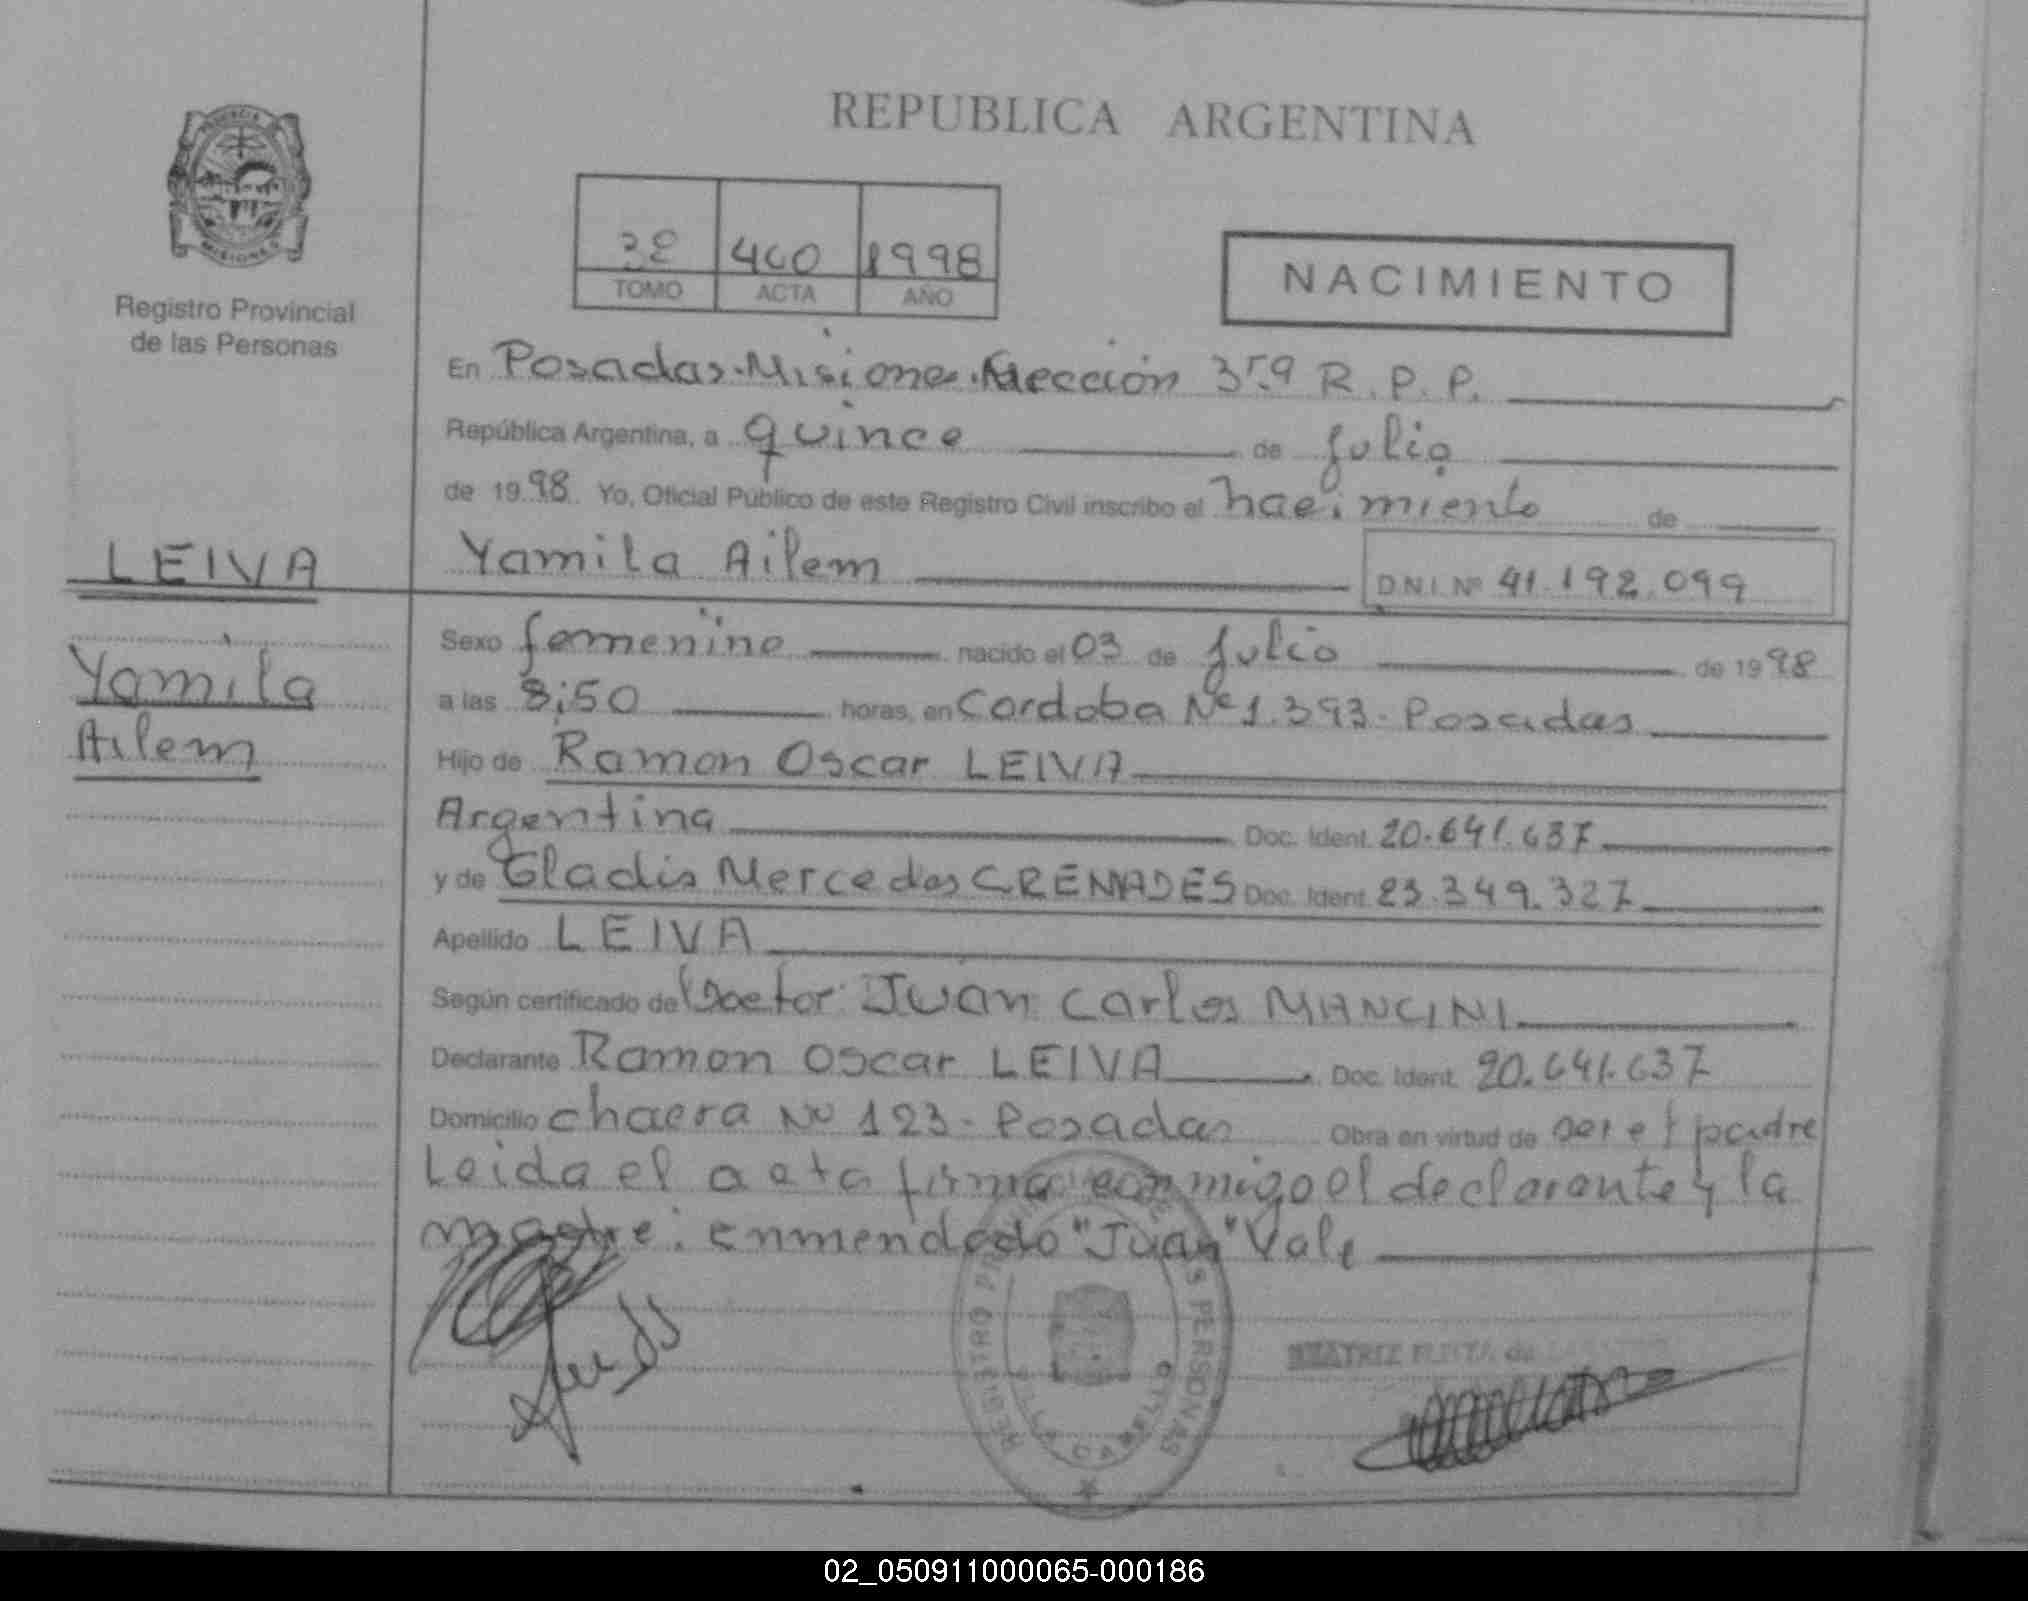 REPUBLICA ARGENTINA
PROVINCIA DE
MISIONES
Registro Provincial
de las Personas
400 1998
TOMO ACTA AÑO
NACIMIENTO
En Posadas. Misiones. Sección 3ra R. P. P.
República Argentina, a quince de julio
de 1998 Yo, Oficial Público de este Registro Civil inscribo el nacimiento de
LEIVA
Yamila Ailem
D.N.I. Nº 41.192.099
Yamila
Ailem
Sexo femenino nacido el 03 de julio de 1998
a las 8:50 horas, en Cordoba Nº 1.393 - Posadas
Hijo de Ramon Oscar LEIVA
Argentina Doc. Ident. 20.641.637
y de Gladis Mercedes CREMADES Doc. Ident. 23.349.327
Apellido LEIVA
Según certificado del Doctor: Juan Carlos MANCINI
Declarante Ramon Oscar LEIVA Doc. Ident. 20.641.637
Domicilio chacra Nº 123 - Posadas Obra en virtud de ser el padre
Leida el acta firma conmigo el declarante y la
madre: enmendado "Juan" Vale
REGISTRO PROVINCIAL DE LAS PERSONAS
VILLA CABELLO
BEATRIZ
02_050911000065-000186